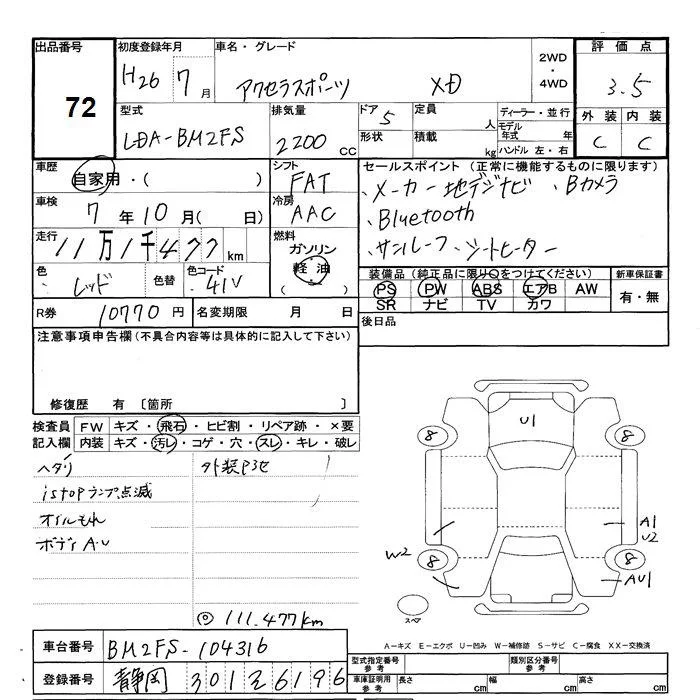 出品番号 初度登録年月 車名・グレード 2WD・4WD 評価点
72 H26 7月 アクセラスポーツ XD 3.5
外装 内装
C C
型式 排気量 ドア 定員 ディーラー・並行
LDA-BM2FS 2200 CC 5 人 モデル年式 年
形状 積載 kg ハンドル 左・右
車歴 シフト セールスポイント (正常に機能するものに限ります)
自家用・( ) FAT ・メーカー地デジナビ ・Bカメラ
車検 冷房 ・Bluetooth
7年10月( 日) AAC ・サンルーフ ・シートヒーター
走行 燃料
11万1千477km ガソリン
軽油
( )
色 色替 色コード 装備品(純正品に限り○をつけてください) 新車保証書
レッド 41V PS PW ABS エアB AW 有・無
SR ナビ TV カワ
R券 10770円 名変期限 月 日 後日品
注意事項申告欄(不具合内容等は具体的に記入して下さい)
修復歴 有 〔箇所 〕
検査員 FW キズ・飛石・ヒビ割・リペア跡・×要
記入欄 内装 キズ・汚レ・コゲ・穴・スレ・キレ・破レ
ヘタリ 外装P他
istopランプ点滅
オイルもれ
ボディA・U
◎ 111.477km
U1
8 8
A1
U2
W2 8 8
AU1
スペア
A－キズ E－エクボ U－凹み W－補修跡 S－サビ C－腐食 XX－交換済
車台番号 BM2FS-104316
型式指定番号 参考 類別区分番号 参考
登録番号 静岡 301 ま 6196
車庫証明用 参考 長さ cm 幅 cm 高さ cm